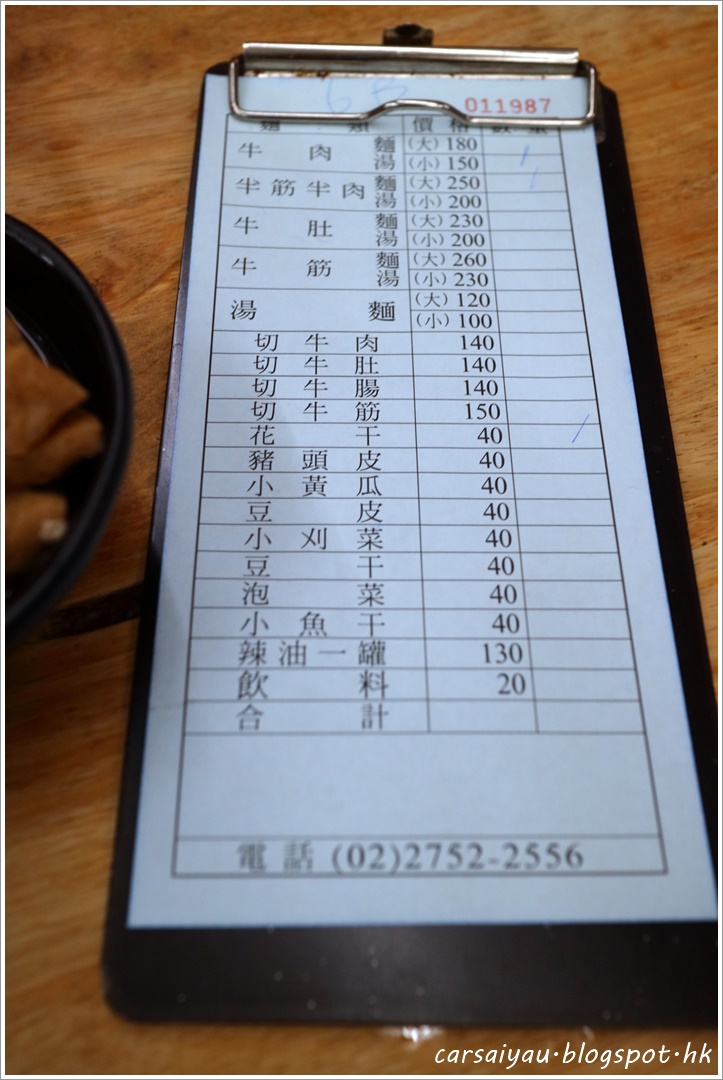 011987
麵 類 價 格 數 量
牛 肉 麵 (大) 180
湯 (小) 150
半 筋 半 肉 麵 (大) 250
湯 (小) 200
牛 肚 麵 (大) 230
湯 (小) 200
牛 筋 麵 (大) 260
湯 (小) 230
湯 麵 (大) 120
(小) 100
切 牛 肉 140
切 牛 肚 140
切 牛 腸 140
切 牛 筋 150
花 干 40
豬 頭 皮 40
小 黃 瓜 40
豆 皮 40
小 刈 菜 40
豆 干 40
泡 菜 40
小 魚 干 40
辣 油 一 罐 130
飲 料 20
合 計
電 話 (02)2752-2556
carsaiyau·blogspot·hk